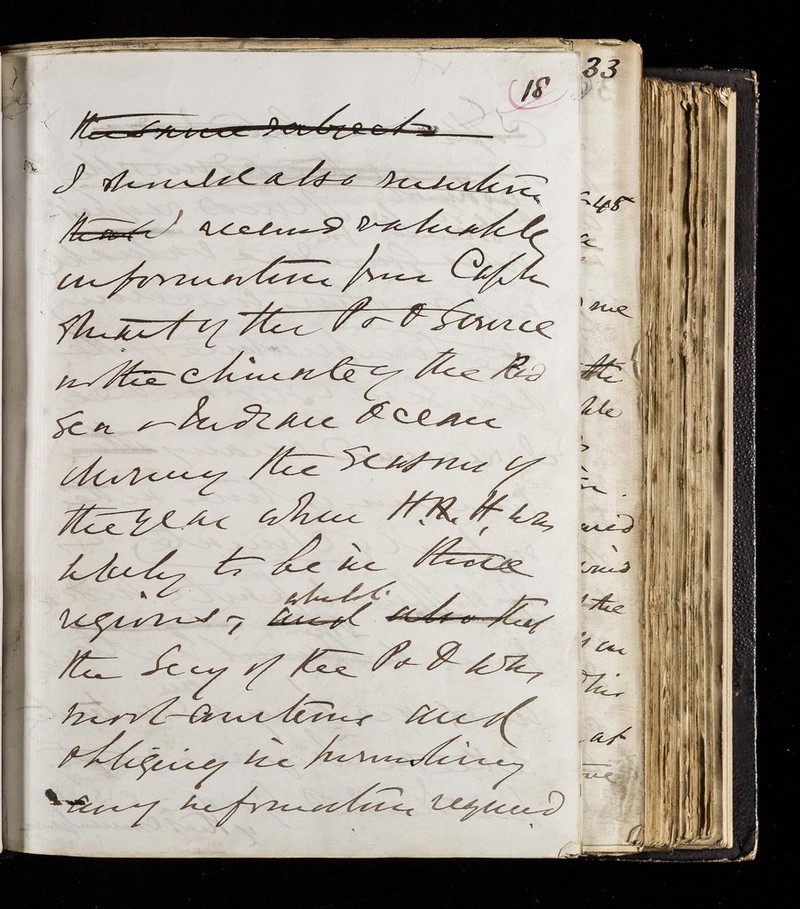 18
the same subjects
I should also mention
that I received valuable
information from Captn
Stuart of the P & O Service
on the climate of the Red
Sea & Indian Ocean
during the Seasons of
the year when H.R.H was
likely to be in those
regions, and also that whilst
the Secy of the P & O was
most courteous and
obliging in furnishing
any information required
33
45
me
the
the
at